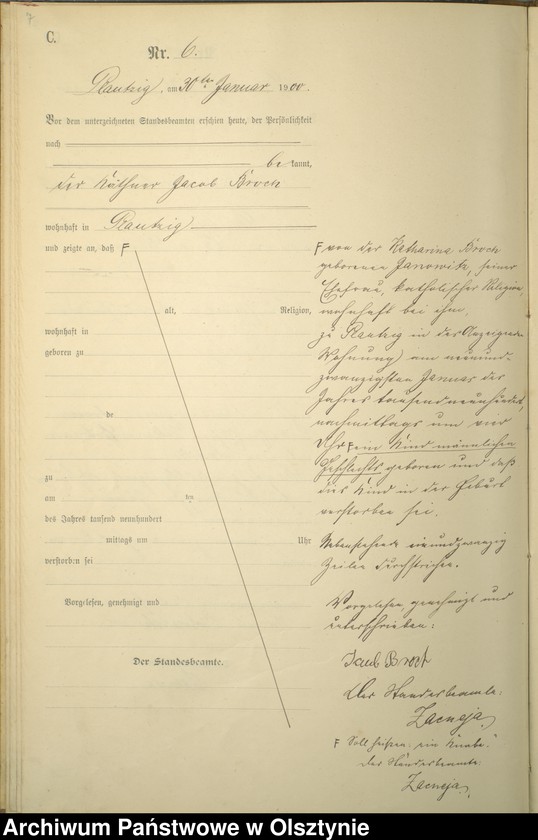 7
C.
Nr. 6.
Plautzig, am 30ten Januar 1900.
Vor dem unterzeichneten Standesbeamten erschien heute, der Persönlichkeit
nach
be kannt,
der Käthner Jacob Broch
wohnhaft in Plautzig
und zeigte an, daß F
alt, Religion,
wohnhaft in
geboren zu
be
zu
am ten
des Jahres tausend neunhundert
mittags um Uhr
verstorben sei
Vorgelesen, genehmigt und
Der Standesbeamte.
F von der Katharina Broch
geborenen Janowitz, seiner
Ehefrau, katholischer Religion,
wohnhaft bei ihm,
zu Plautzig in des Anzeigenden
Wohnung, am neunund-
zwanzigsten Januar des
Jahres tausendneunhundert,
nachmittags um vier
Uhr F ein Kind männlichen
Geschlechts geboren und daß
dies Kind in der Geburt
verstorben sei.
Nebenstehende einundzwanzig
Zeilen durchstrichen.
Vorgelesen, genehmigt und
unterschrieben:
Jacob Broch
Der Standesbeamte:
Zacneja
F Soll heißen: ein Knabe.
Der Standesbeamte:
Zacneja
Archiwum Państwowe w Olsztynie